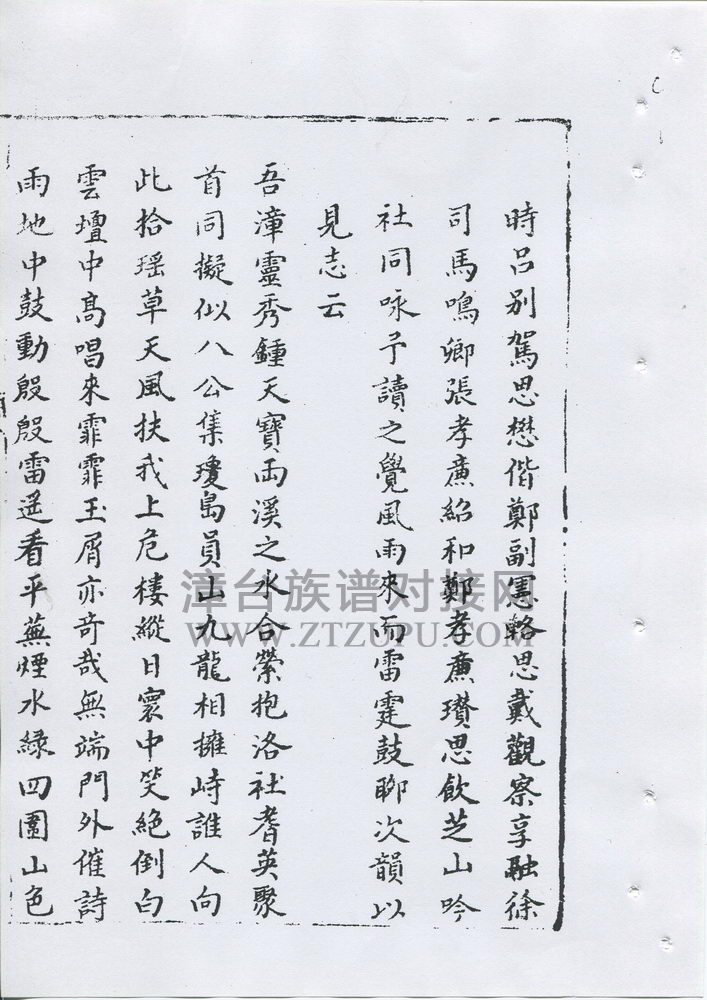 時呂別駕思懋偕鄭副憲輅思戴觀察亨融徐
司馬鳴卿張孝廉紹和鄭孝廉瓚思飲芝山吟
社同咏予讀之覺風雨來而雷霆鼓聊次韻以
見志云
吾漳靈秀鍾天寶兩溪之水合縈抱洛社耆英聚
首同擬似八公集瓊島員山九龍相擁峙誰人向
此拾瑶草天風扶我上危樓縱目寰中笑絕倒白
雲壇中高唱來霏霏玉屑亦奇哉無端門外催詩
雨地中鼓動殷殷雷遥看平蕪煙水綠四圍山色
漳台族谱对接网
WWW.ZTZUPU.COM